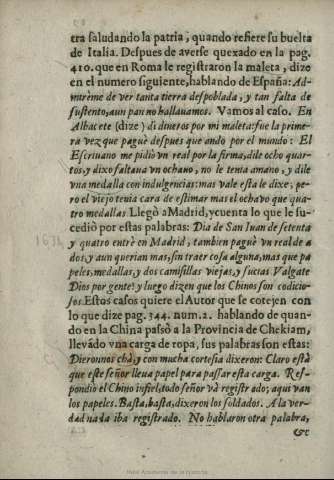 tra saludando la patria, quando refiere su buelta
de Italia. Despues de averse quexado en la pag.
410. que en Roma le registraron la maleta, dize
en el numero siguiente, hablando de España: Ad-
mirème de ver tanta tierra despoblada, y tan falta de
sustento, aun pan no hallauamos. Vamos al caso. En
Albacete (dize) di dineros por mi maleta: fue la prime-
ra vez que paguè despues que ando por el mundo: El
Escriuano me pidiò vn real por la firma, dile ocho quar-
tos, y dixo faltaua vn ochauo, no le tenia a mano, y dile
vna medalla con indulgencias: mas vale esta le dixe; pe-
ro el viejo tenia cara de estimar mas el ochavo que qua-
tro medallas Llegò a Madrid, y cuenta lo que le su-
cediò por estas palabras: Dia de San Iuan de setenta
y quatro entrè en Madrid, tambien paguè vn real de a
dos, y aun querian mas, sin traer cosa alguna, mas que pa
peles, medallas, y dos camisillas viejas, y sucias Valgate
Dios por gente! y luego dizen que los Chinos son codicio-
sos. Estos casos quiere el Autor que se cotejen con
lo que dize pag. 344. num. 2. hablando de quan-
do en la China passò a la Provincia de Chekiam,
llevãdo vna carga de ropa, sus palabras son estas:
Dieronnos chà, y con mucha cortesia dixeron: Claro està
que este señor lleua papel para passar esta carga. Res-
pondiò el Chino infiel, todo señor và registrado; aqui van
los papeles. Basta, basta, dixeron los soldados. A la ver-
dad nada iba registrado. No hablaron otra palabra,
&c
Real Academia de la Historia